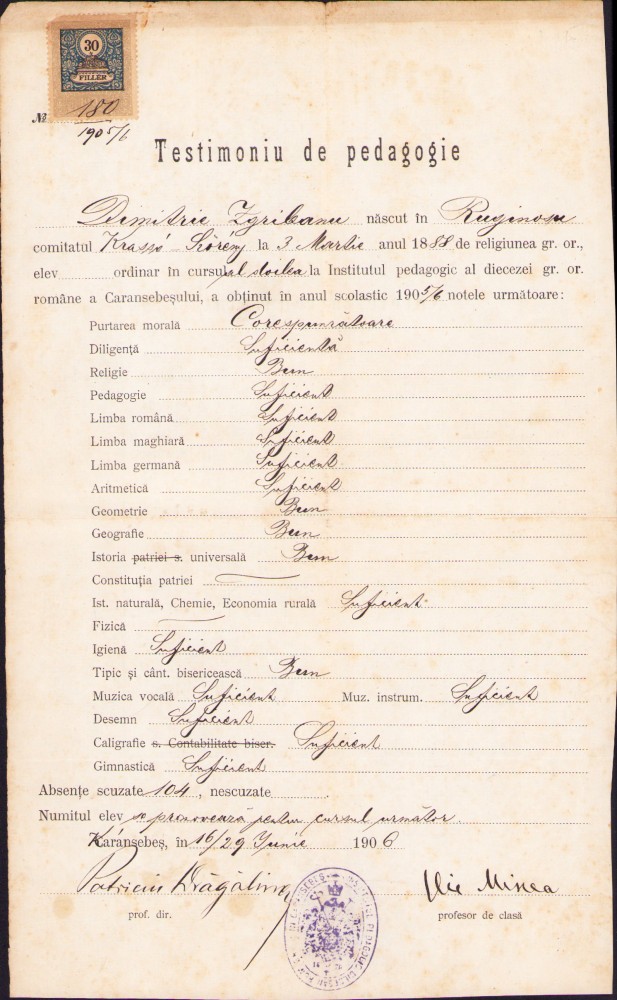 30
FILLÉR
№ 180
1905/6
Testimoniu de pedagogie
Dimitrie Zgribanu născut în Ruginosu
comitatul Krasso-Szörény la 3 Martie anul 1888 de religiunea gr. or.,
elev ordinar în cursul al doilea la Institutul pedagogic al diecezei gr. or.
române a Caransebeșului, a obținut în anul scolastic 1905/6 notele următoare:
Purtarea morală Corespunzătoare
Diligență Suficientă
Religie Bun
Pedagogie Suficient
Limba română Suficient
Limba maghiară Suficient
Limba germană Suficient
Aritmetică Suficient
Geometrie Bun
Geografie Bun
Istoria patriei s. universală Bun
Constituția patriei
Ist. naturală, Chemie, Economia rurală Suficient
Fizică
Igienă Suficient
Tipic și cânt. bisericească Bun
Muzica vocală Suficient Muz. instrum. Suficient
Desemn Suficient
Caligrafie s. Contabilitate biser. Suficient
Gimnastică Suficient
Absențe scuzate 104, nescuzate
Numitul elev se promovează pentru cursul următor.
Karánsebeș, în 16/29 Junie 1906
Patriciu Drăgălina Ilie Minea
prof. dir. profesor de clasă